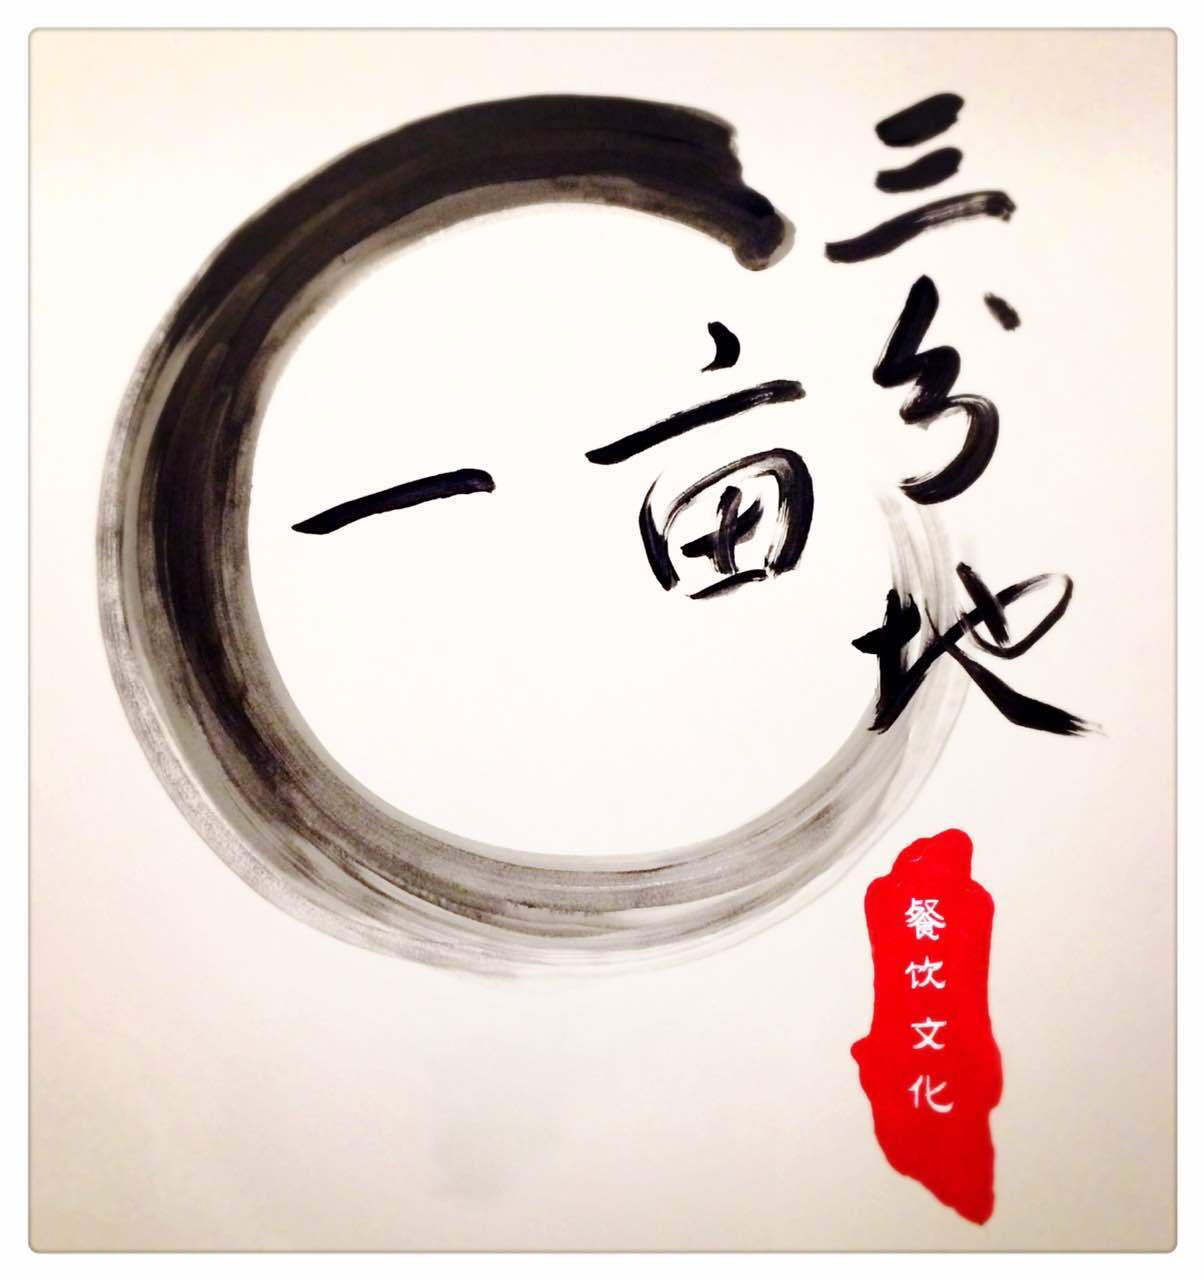 一亩
三分地
餐饮文化